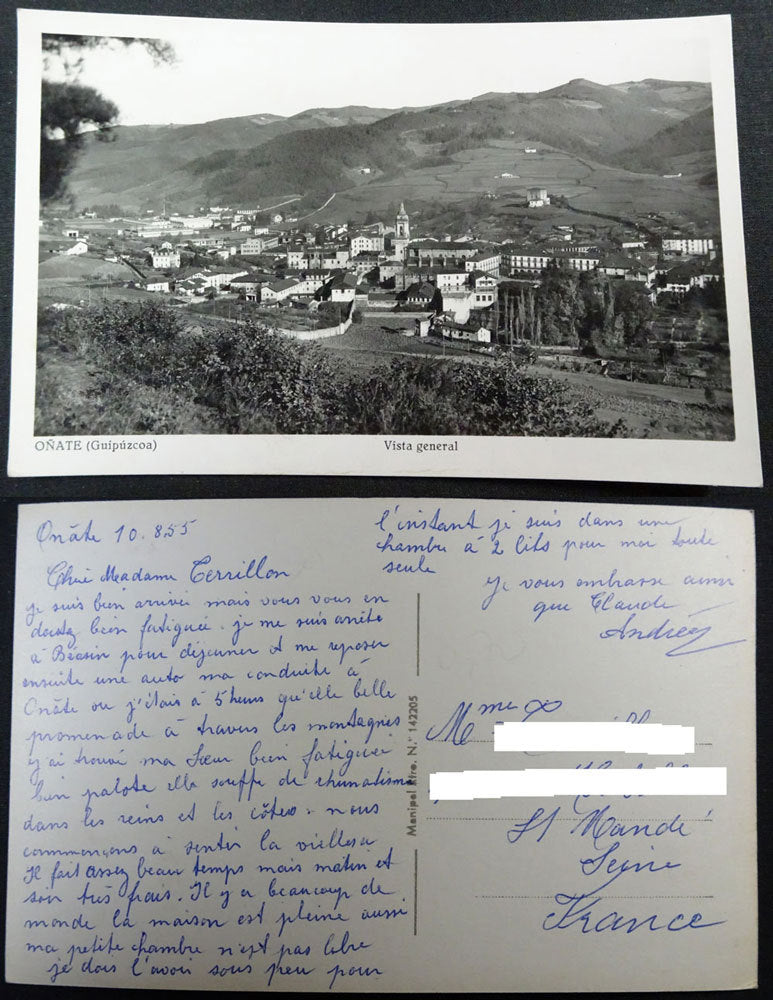 OÑATE (Guipúzcoa)
Vista general
Oñate 10.8.55
Cher Madame Terrillon
je suis bien arrivée mais vous vous en
doutez bien fatiguée. je me suis arrêté
à Béasin pour déjeuner et me reposer
ensuite une auto ma conduite à
Oñate ou j'étais à 5 heures qu'elle belle
promenade à travers les montagnes
j'ai trouvé ma sœur bien fatiguée
bien palote elle souffre de rhumatisme
dans les reins et les côtes. nous
commençons à sentir la viellesse
Il fait assez beau temps mais matin et
soir très frais. Il y a beaucoup de
monde la maison est pleine aussi
ma petite chambre n'est pas libre
je dois l'avoir sous peu pour
l'instant je suis dans une
chambre à 2 lits pour moi toute
seule
je vous embrasse ainsi
que Claude
Andrée
Manipel Ntro. N.° 142205
Mme
St Mandé
Seine
France